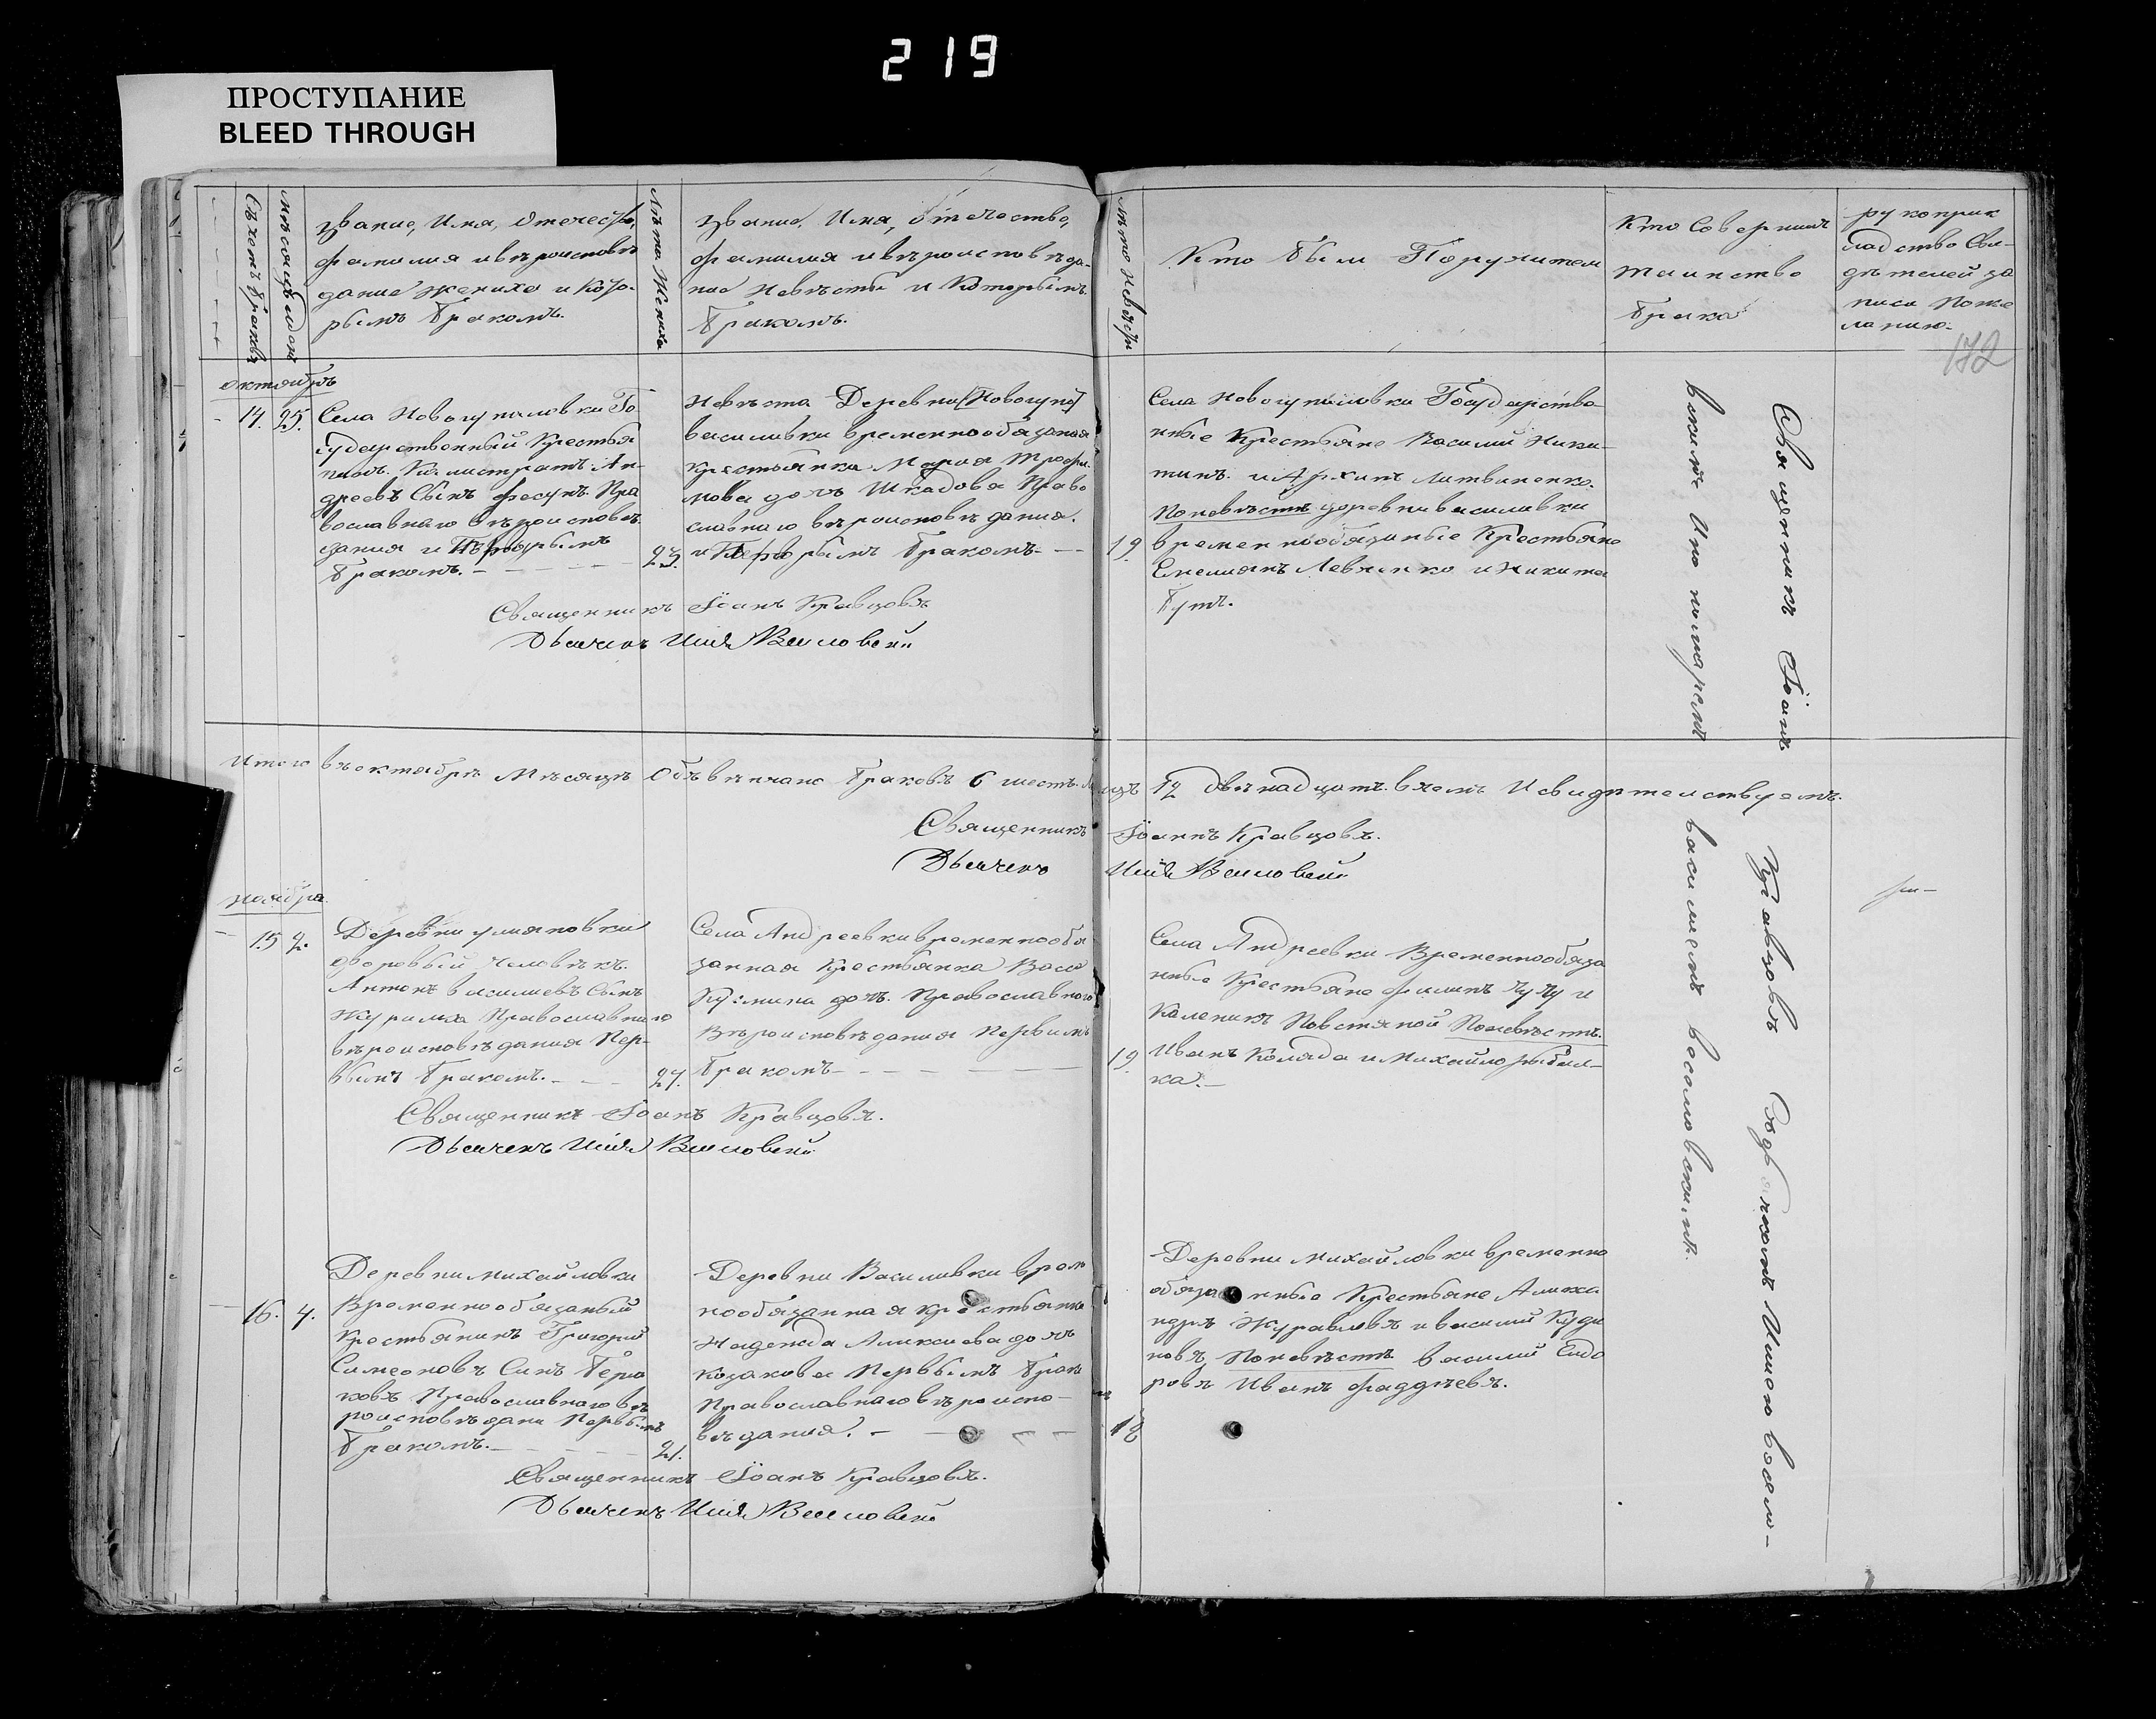 219
ПРОСТУПАНИЕ
BLEED THROUGH
Счетъ браковъ
Мѣсяцъ и день
Званіе, Имя, Отечество,
фамилія и вѣроисповѣ
даніе жениха и Кото-
рымъ бракомъ.
Лѣта Жениха
Званіе, Имя, Отечество,
фамилія и вѣроисповѣда-
ніе Невѣсты и Которымъ
бракомъ.
Лѣта Невѣсты
Кто были Поручители
Кто Совершилъ
таинство
брака
рукоприк
ладство Сви-
дѣтелей за
писи поже
ланію.
172
октябрь
14. 25.
Села Новогупаловки Го
сударственный Крестья
нинъ Калистратъ Ан-
дреевъ Сынъ Фесунъ Пра
вославнаго вѣроисповѣ
данія и Первымъ
бракомъ. 23.
Невѣста Деревни [Новогупо]
василивки временнообязаная
крестьянка Марія Трофи
мова дочъ Шкадова Право
славнаго вѣроисповѣданія.
и Первымъ бракомъ 19
Села Новогупаловки Государстве
нные Крестьяне Василий Ники-
тинъ и Архипъ Литвиненко.
По невѣстѣ деревни василивки
временнообязаные Крестьяне
Емелиянъ Левченко и Никита
бутъ.
Священникъ Іоанъ Кравцовъ
Дьячекъ
Итого въ октябрѣ Мѣсяцѣ Объвѣнчано браковъ 6 шесть. лицъ 12 двѣнадцать. въ чемъ и Свидѣтельствуемъ.
Священникъ Іоаннъ Кравцовъ.
Дьячекъ
ноября
15 2.
Деревни улияновки
дворовый Человѣкъ
Антонъ василиевъ Сынъ
Журимха Православнаго
вѣроисповѣданія Пер-
вымъ бракомъ. 27.
Села Андреевки временнообя
занная Крестьянка Васа
Кузмина дочъ. Православнаго
Вѣроисповѣданія Первымъ
бракомъ 19
Села Андреевки Временнообяза
нные Крестьяне Филипъ Чучу и
Каленикъ Повстяной По невѣстѣ
Иванъ Коляда и Михайло рыбал-
ка.
Священникъ Іоанъ Кравцовъ.
Дьячекъ
16. 4.
Деревни михайловки
Временнообязаный
Крестьянинъ Григорий
Симеоновъ Синъ
Православнаго вѣ
роисповѣдани Первымъ
бракомъ. 21.
Деревни Василивки врем
нообязанная крестьянка
Надежда Аликсиева дочъ
козакова Первымъ брак
Православнаго вѣроиспо-
вѣданія. 18
Деревни михайловки временно
обязанные Крестьяне Алекса
ндръ Журавловъ и василий Куди
новъ, По невѣстѣ василий Сидо
ровъ Иванъ Фаддѣевъ.
Священникъ Іоанъ Кравцовъ.
Дьячекъ
Священникъ Іоанъ Кравцовъ